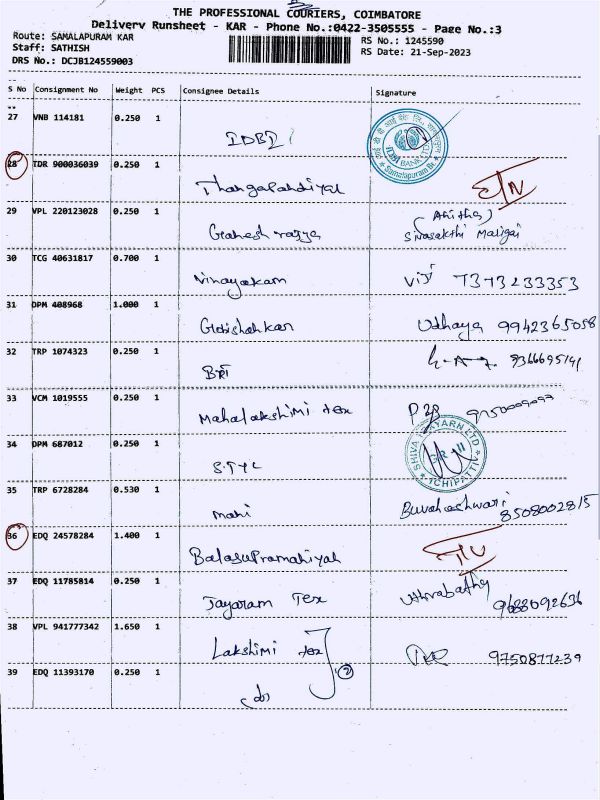 THE PROFESSIONAL COURIERS, COIMBATORE
Delivery Runsheet - KAR - Phone No.:0422-3505555 - Page No.:3
Route: SAMALAPURAM KAR
RS No.: 1245590
Staff: SATHISH
RS Date: 21-Sep-2023
DRS No.: DCJB124559003
S No Consignment No Weight PCS Consignee Details Signature
27 VNB 114181 0.250 1
IDBI
IDBI BANK LTD.
Samalapuram Br.
28 TDR 900036039 0.250 1
Thangapandiyan
29 VPL 220123028 0.250 1
(Anitha)
Ganesh Sivasakthi Maligai
30 TCG 40631817 0.700 1
Vinayakam Viji 7373233353
31 DPM 408968 1.000 1
Udhaya 9942365058
32 TRP 1074323 0.250 1
9366695141
33 VCM 1019555 0.250 1
Mahalakshimi tex
34 DPM 687012 0.250 1
SHIVA YARN LTD
35 TRP 6728284 0.530 1
Mahi Buvaneshwari
8508002815
36 EDQ 24578284 1.400 1
Balasupramaniyan
37 EDQ 11785814 0.250 1
Jayaram Tex 9688092636
38 VPL 941777342 1.650 1
Lakshimi tex 9750877239
2
39 EDQ 11393170 0.250 1
do